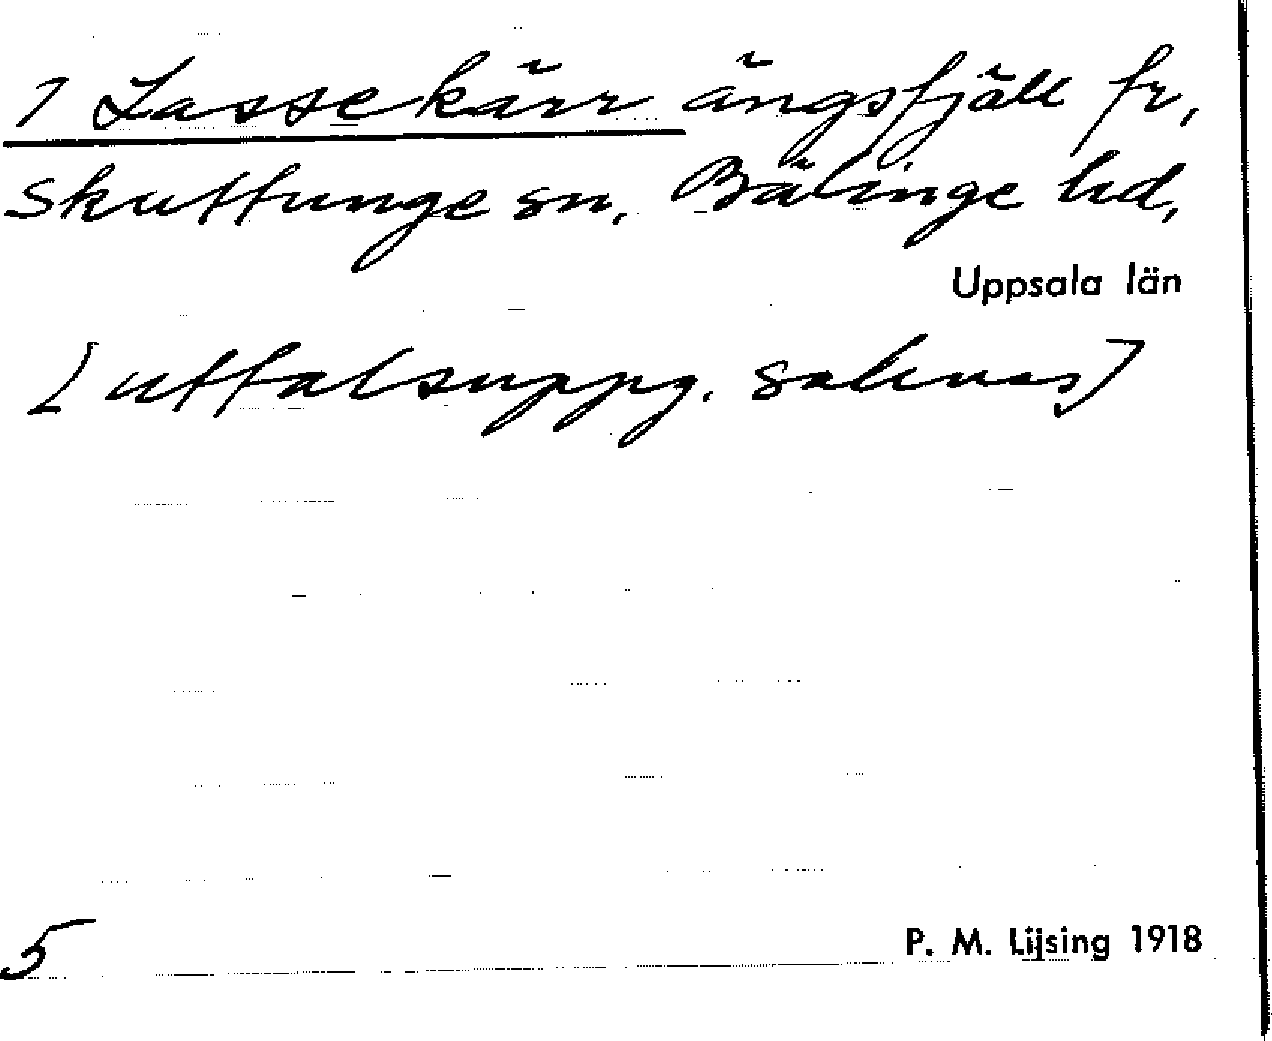 1 Lassekärr ängsfjäll fr,
Skuttunge sn. Bälinge hd,
Uppsala län
[uttalsuppg. saknas]
5
P. M. Lijsing 1918